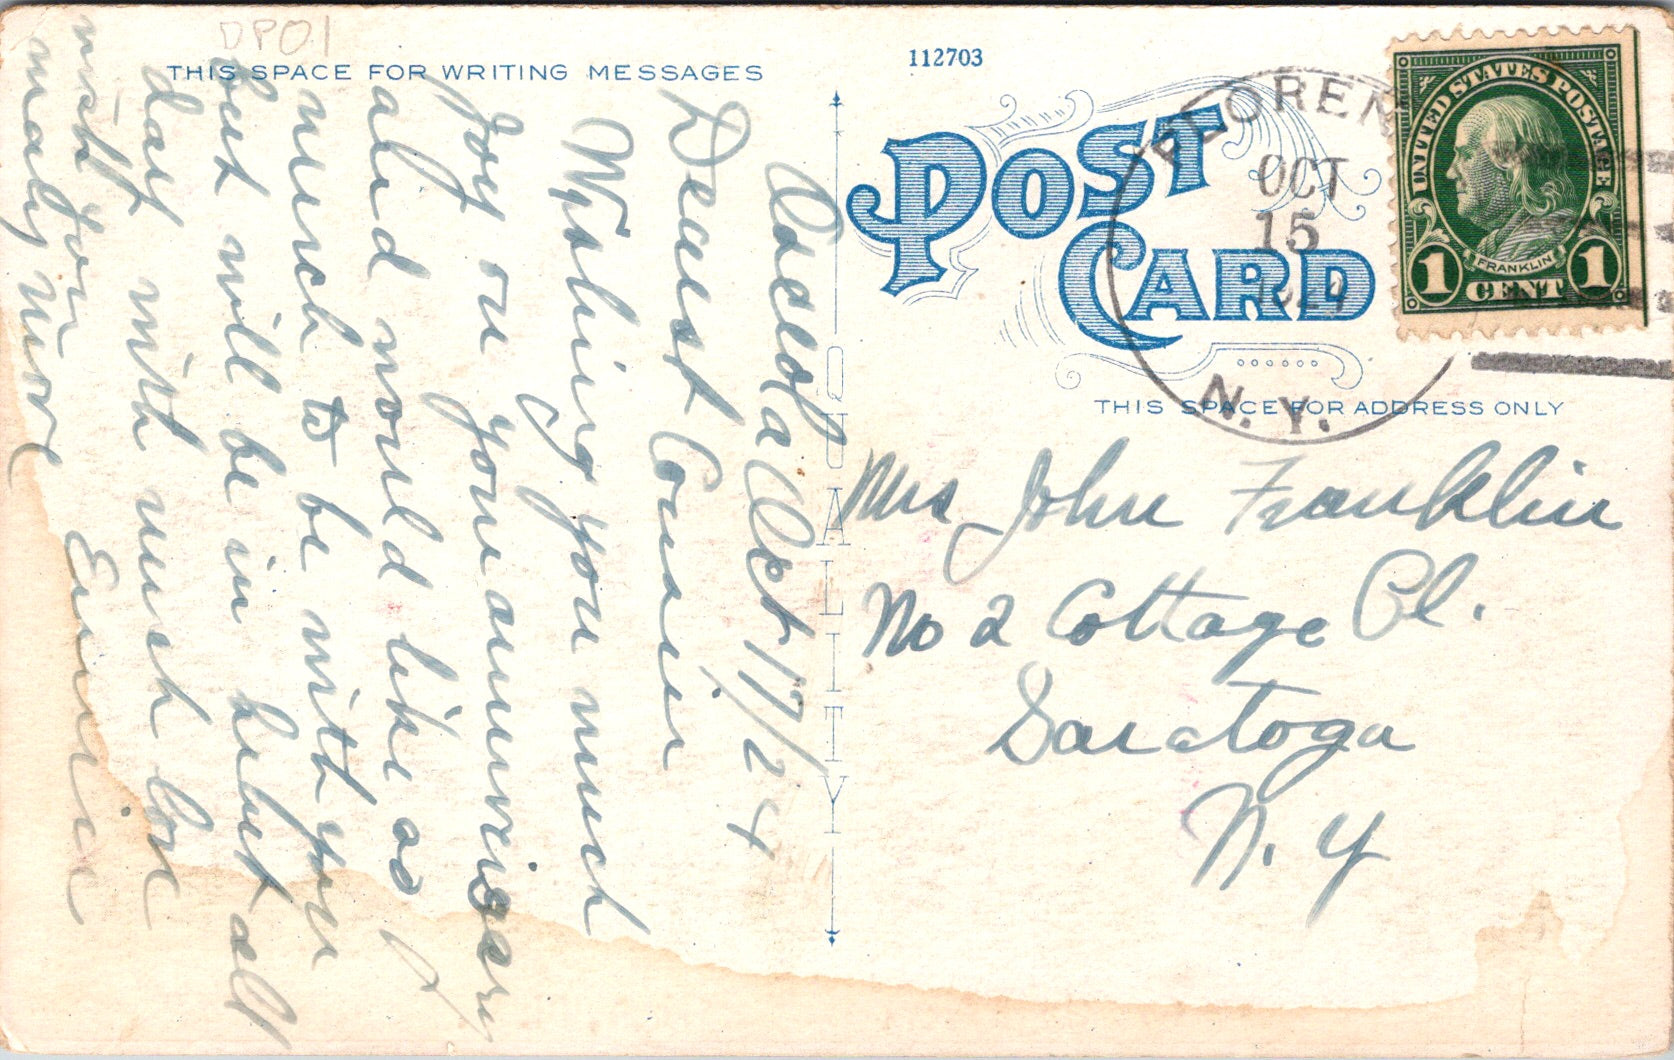 DPO1
THIS SPACE FOR WRITING MESSAGES
112703
POST
CARD
QUALITY
THIS SPACE FOR ADDRESS ONLY
UNITED STATES POSTAGE
FRANKLIN
1 CENT 1
FLOREN
OCT
15
N.Y.
Osceola Oct 17/24
Dearest Cousin
Wishing you much
joy on your anniversary
and would like so
much to be with you
but will be in all
day with much love
wish you
many more
Eunice
Mrs John Franklin
No 2 Cottage Pl.
Saratoga
N. Y